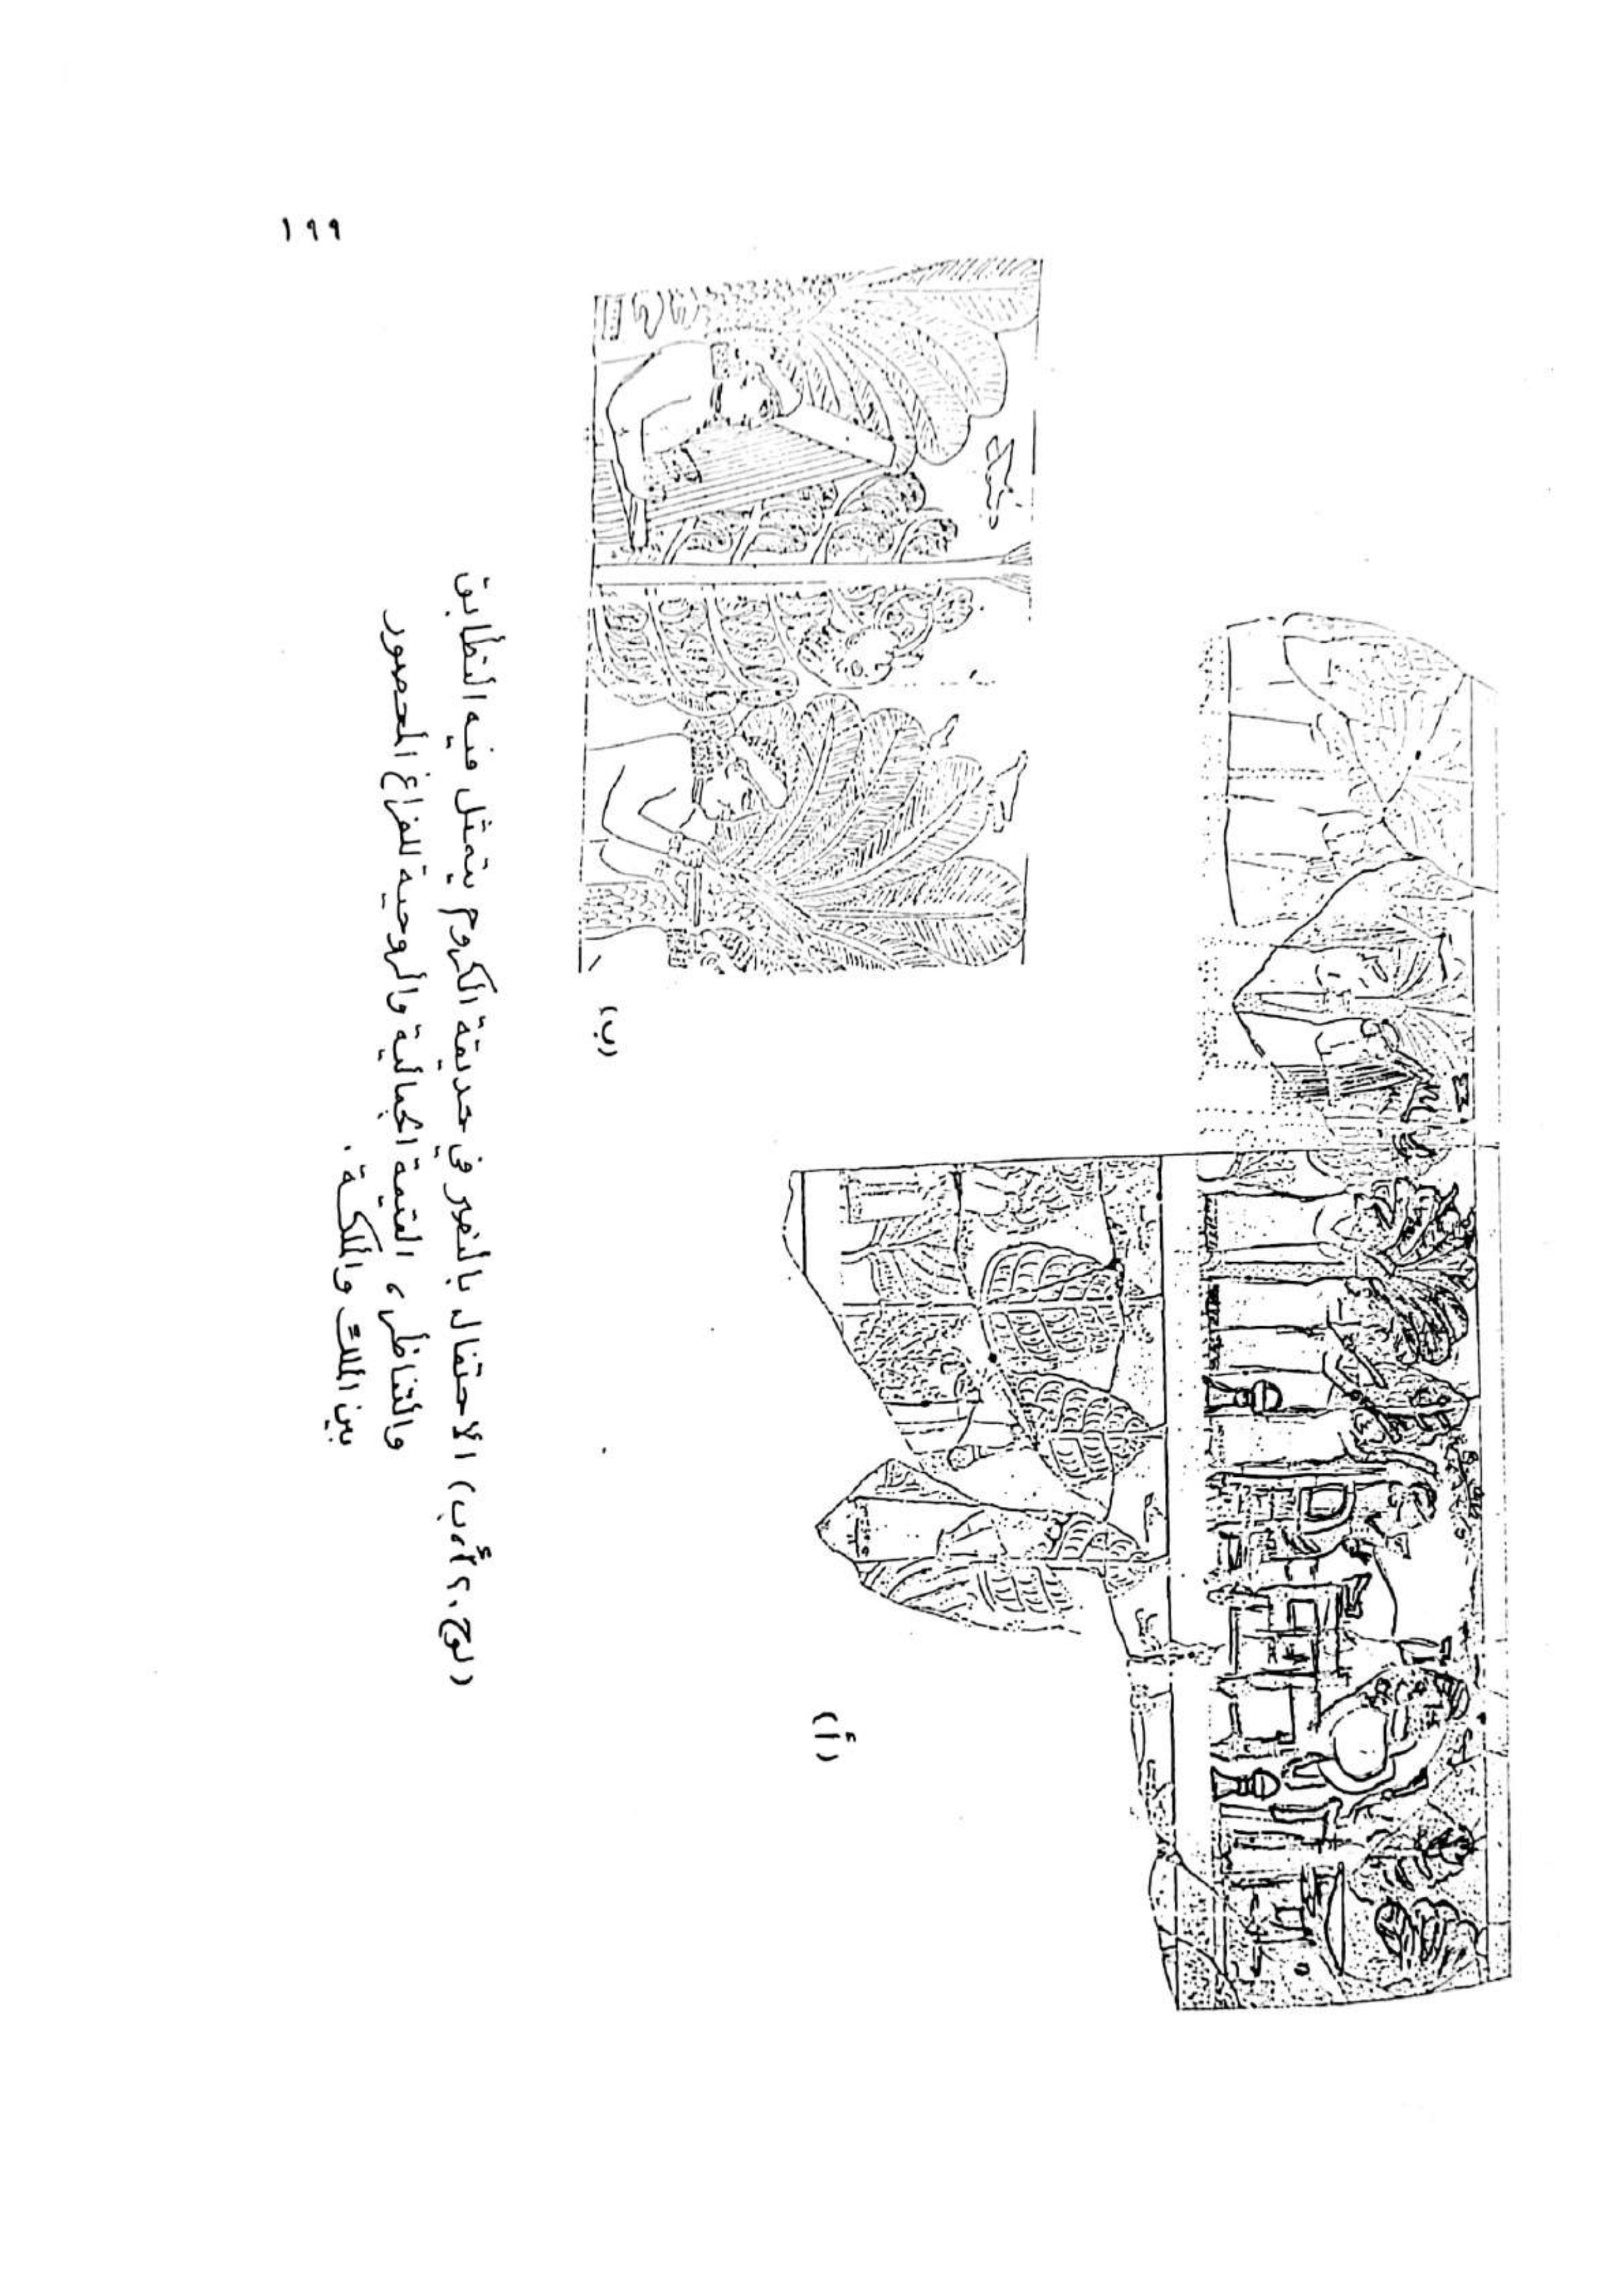 ١٩٩
(أ)
(ب)
(لوح ٢٠ أ، ب) الاحتفال بالنصر في حديقة الكروم يتمثل فيه التطابق
والتناظر، القيمة الجمالية والروحية للفراغ المحصور
بين الملك والملكة.